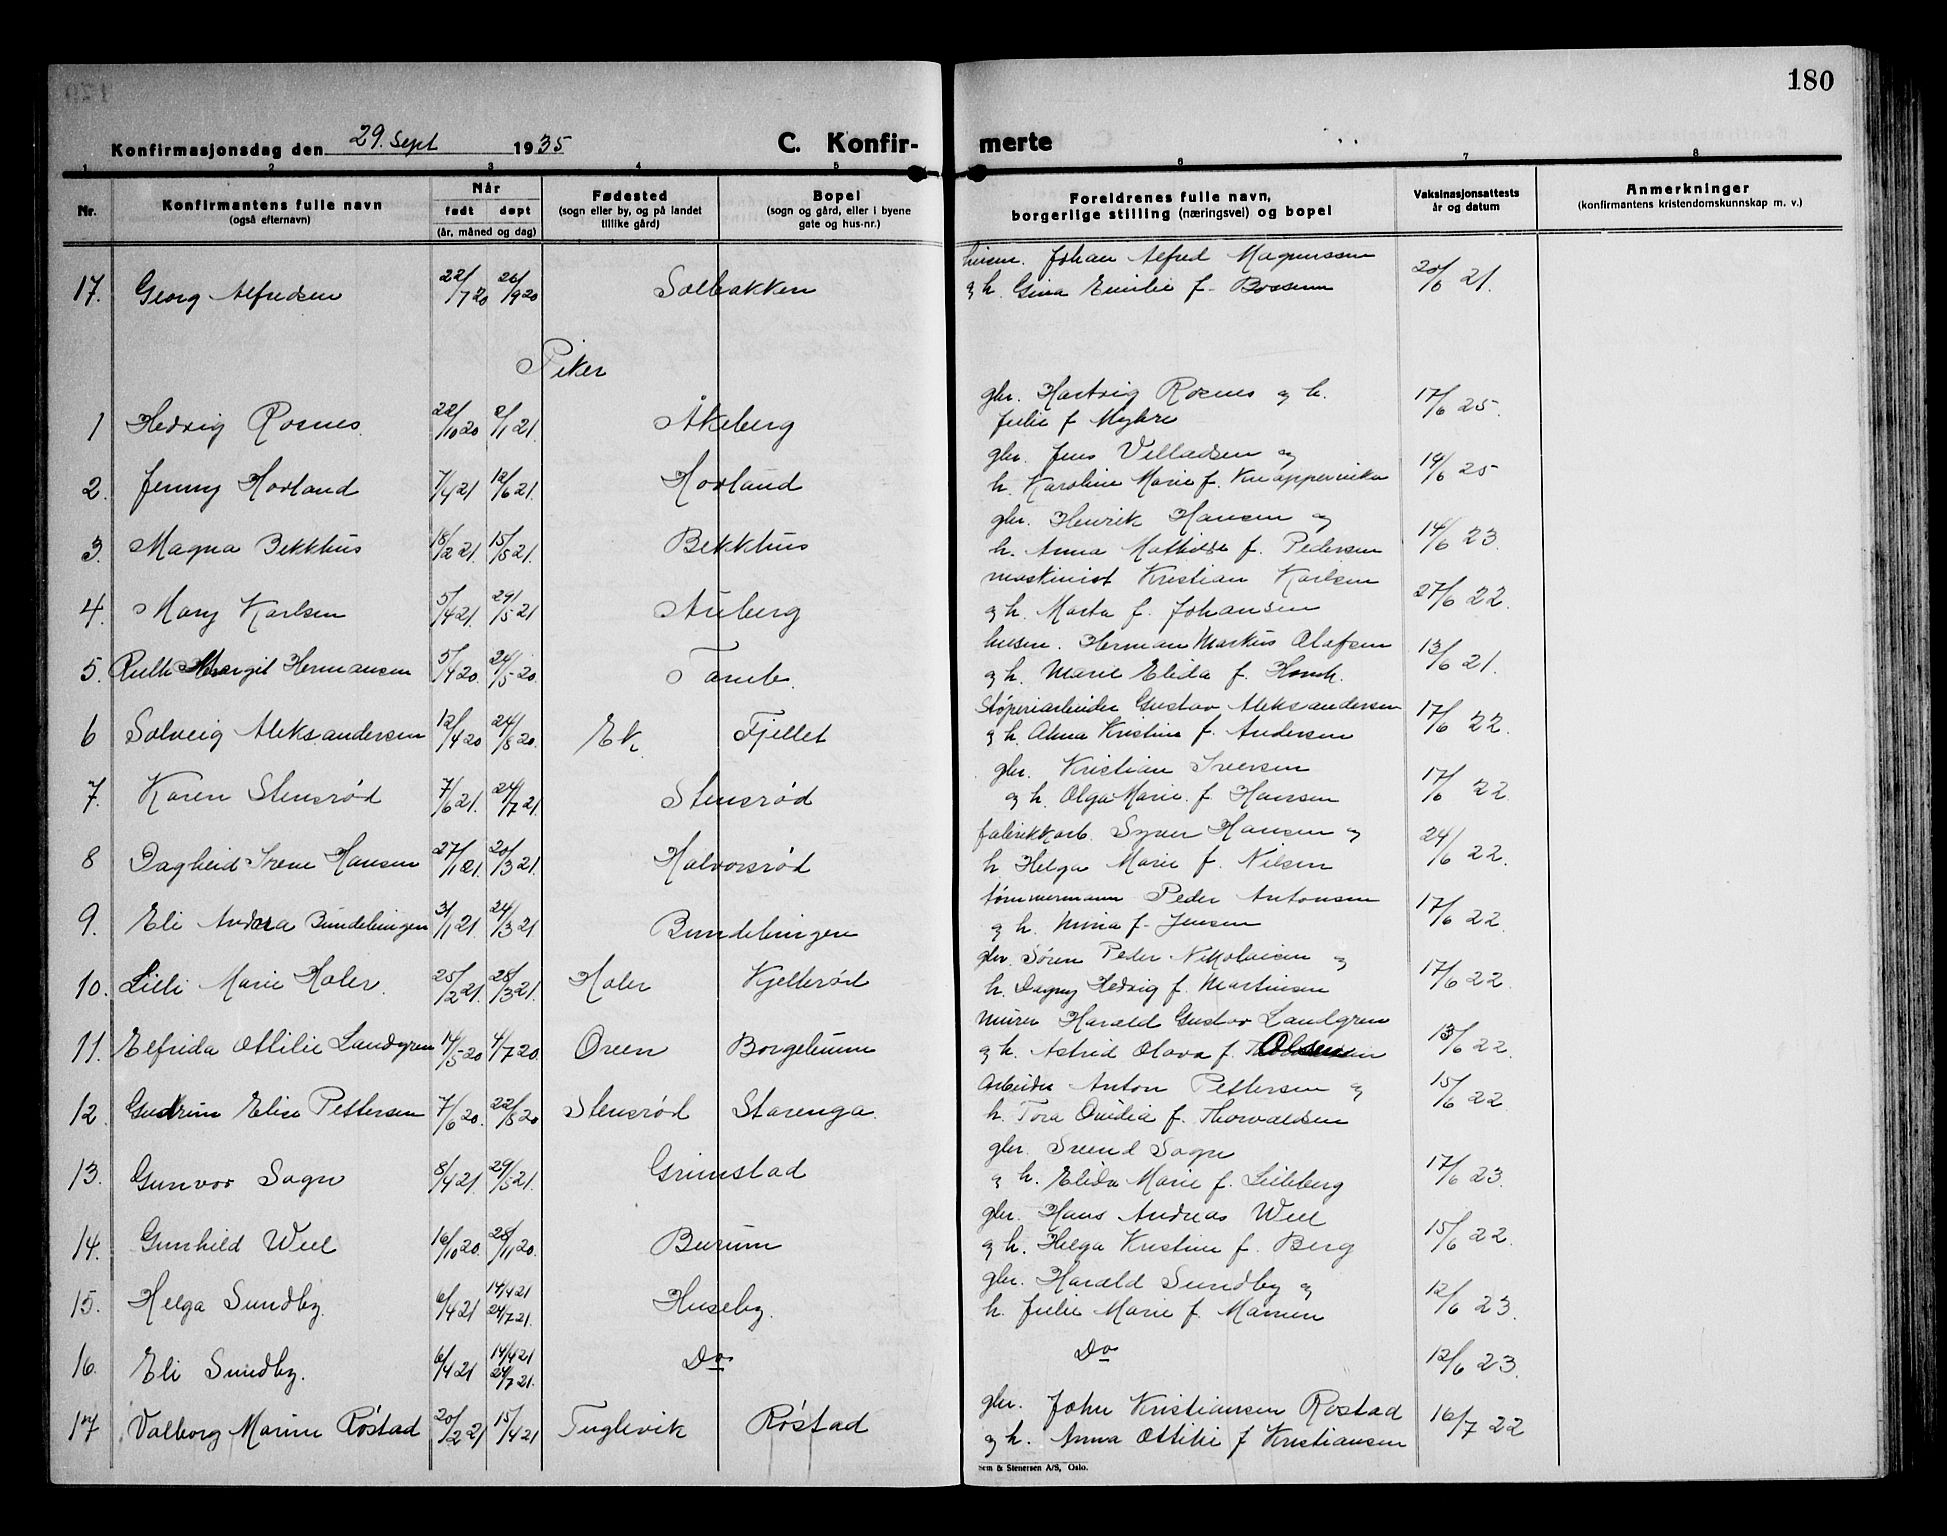 180
Konfirmasjonsdag den 29. Sept 1935
C. Konfir- merte
1 2 3 4 5 6 7 8
Nr.
Konfirmantens fulle navn
(også efternavn)
Når
født døpt
(år, måned og dag)
Fødested
(sogn eller by, og på landet
tillike gård)
Bopel
(sogn og gård, eller i byene
gate og hus-nr.)
Foreldrenes fulle navn,
borgerlige stilling (næringsvei) og bopel
Vaksinasjonsattests
år og datum
Anmerkninger
(konfirmantens kristendomskunnskap m. v.)
husm. Johan Alfred Magnussen
17. Georg Alfredsen 22/7 20 26/9 20 Solbakken og h. Gina Emilie f. 20/6 21.
Piker
gbr. Hartvig Rosnes og h.
1 Hedvig Rosnes 22/10 20 2/11 21. Åkeberg Julie f Myhre 17/6 25.
gbr. Jens Villadsen og
2. Jenny Hovland 7/4 21 12/6 21. Hovland h. Karoline Marie f. Knappervika 14/6 25
gbr. Henrik Hansen og
3. Magna Bekkhus 18/2 21. 15/5 21. Bekkhus h. Anna Mathilde f. Pedersen 14/6 23.
maskinist Kristian Karlsen
4. Mary Karlsen 5/4 21. 29/5 21 Auberg og h. Marta f. Johansen 27/6 22.
husm. Herman Markus Olafsen
5. Ruth Margit Hermansen 5/4 20. 24/5 20. Tomb. og h. Marie Elida f. 13/6 21.
Støperiarbeider Gustav Aleksandersen
6 Solveig Aleksandersen 12/4 20 24/8 20. Ek. Fjellet og h. Alma Kristine f. Andersen 17/6 22.
gbr. Kristian Iversen
7. Karen Stensrød 7/6 21. 24/7 21. Stensrød og h. Olga Marie. f. Hansen 17/6 22.
fabrikkarb. Syver Hansen og
8 Dagheid Irene Hansen 27/1 21. 20/3 21. Halvorsrød h. Helga Marie f. Nilsen 24/6 22.
tømmermann Peder Antonsen
9. Eli Andrea Bundebingen 31/1 21. 24/3 21. Bundebingen og h. Mina f. Jensen 17/6 22.
gbr. Søren Peder Nikolaisen og
10. Lilli Marie Holer. 25/2 21. 28/3 21. Holer Kjellerød h. Dagny Hedvig f. Martinsen 17/6 22.
murer Harald Gustav Landgren
11. Elfrida Ottilie Landgren 14/5 20 4/7 20. Oven Borgebunn og h. Astrid Olava f. 13/6 22.
Arbeider Anton Pettersen og
12. Gudrun Elise Pettersen 7/6 20. 22/8 20 Stensrød Starenga. h. Tora Ovidia f. Thorvaldsen 15/6 22
gbr. Svend Sogn
13. Gunvor Sogn 8/4 21. 29/5 21. Grimstad og h. Elida Marie f. Lilleberg 17/6 23.
gbr. Hans Andreas Weel
14. Gunhild Weel 16/10 20. 28/11 20. Burum og h. Helga Kristine f. Berg 15/6 22.
gbr. Harald Sundby og
15. Helga Sundby. 6/4 21 14/4 21 24/7 21. Huseby. h. Julie Marie f. 12/6 23.
16. Eli Sundby. 6/4 21 14/4 21 24/7 21. Do Do 12/6 23.
gbr. John Kristiansen Rostad
17 Valborg Marine Röstad 20/2 21 15/4 21 Fuglevik Röstad og h. Anna Ottilie f Kristiansen 16/7 22
Sem & Stenersen A/S, Oslo.